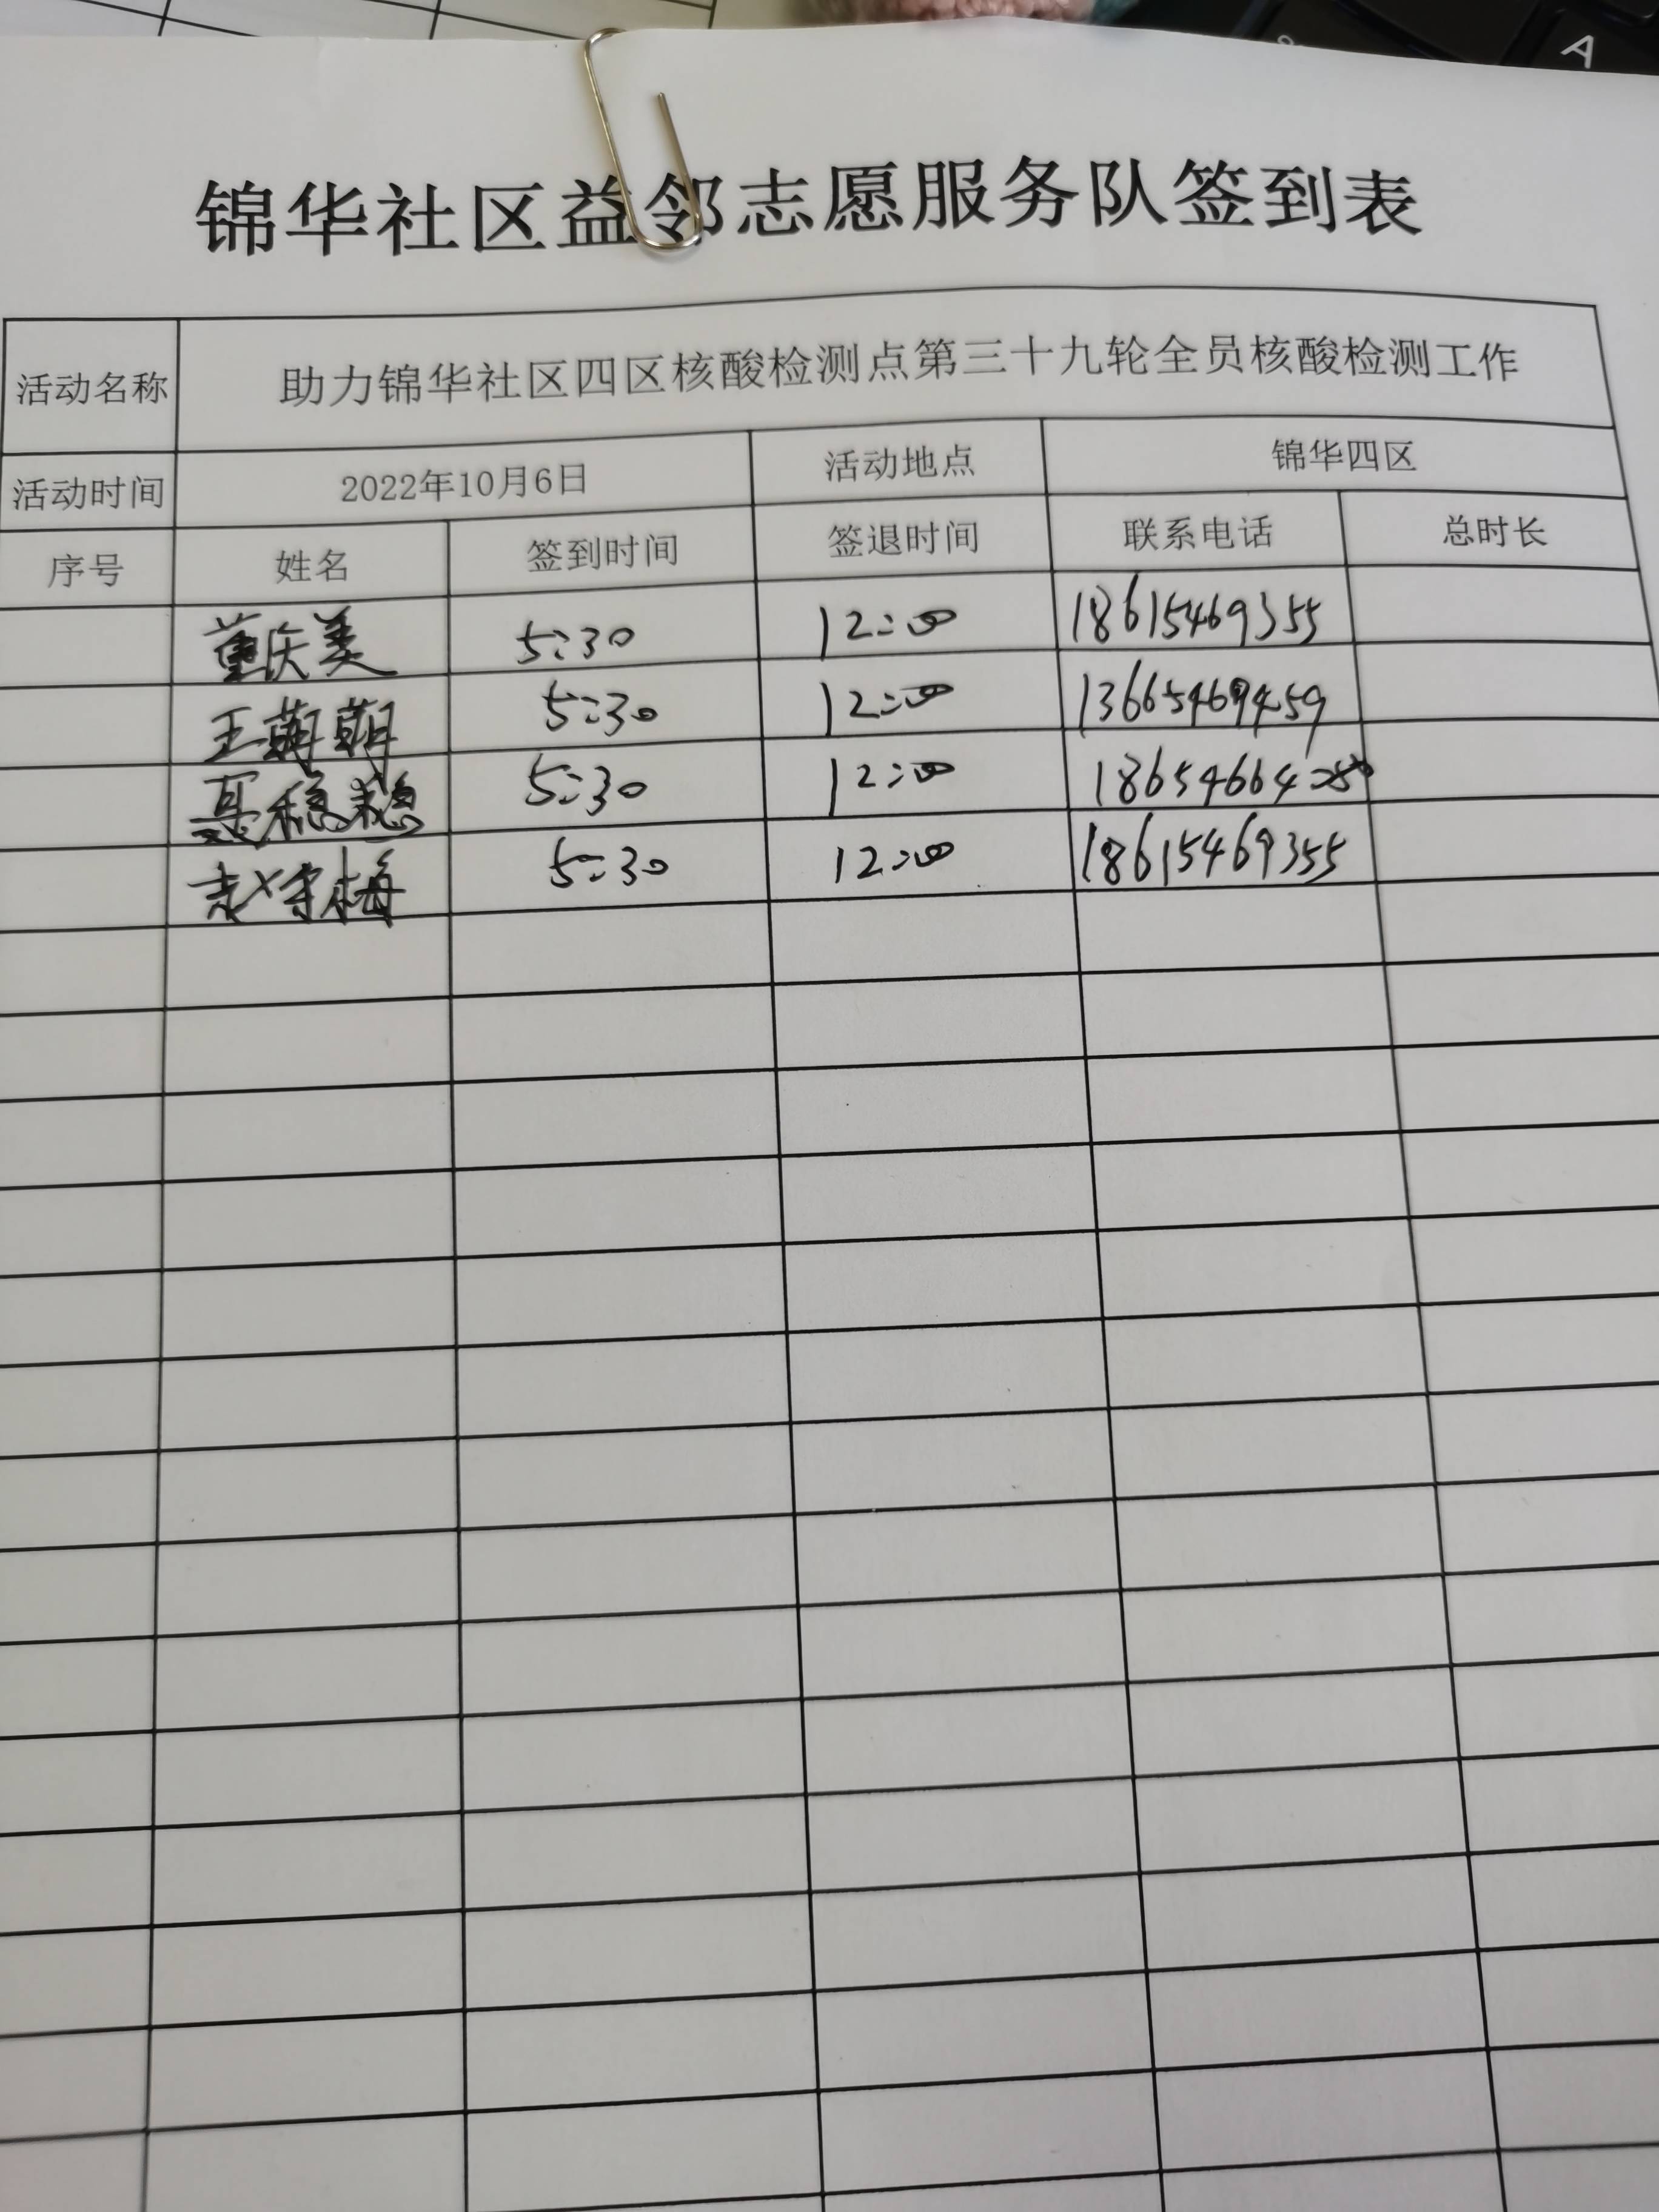 锦华社区益邻志愿服务队签到表
活动名称 助力锦华社区四区核酸检测点第三十九轮全员核酸检测工作
活动时间 2022年10月6日 活动地点 锦华四区
序号 姓名 签到时间 签退时间 联系电话 总时长
董庆美 5:30 12:00 18615469355
王萌萌 5:30 12:00 13665469459
聂稳稳 5:30 12:00
赵守梅 5:30 12:00 18615469355
A